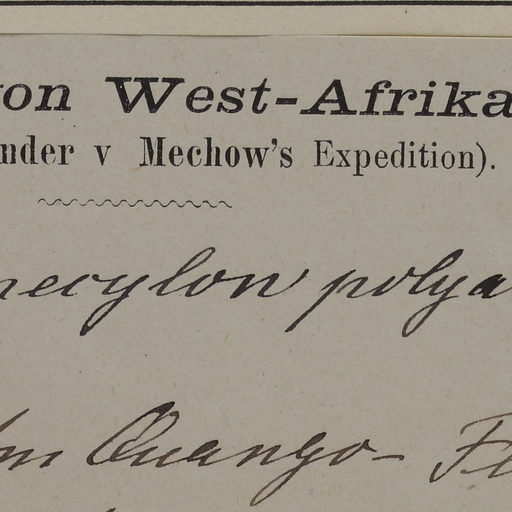 von West-Afrika
nder v Mechow's Expedition).
necylon polya
Am Quango- Fl